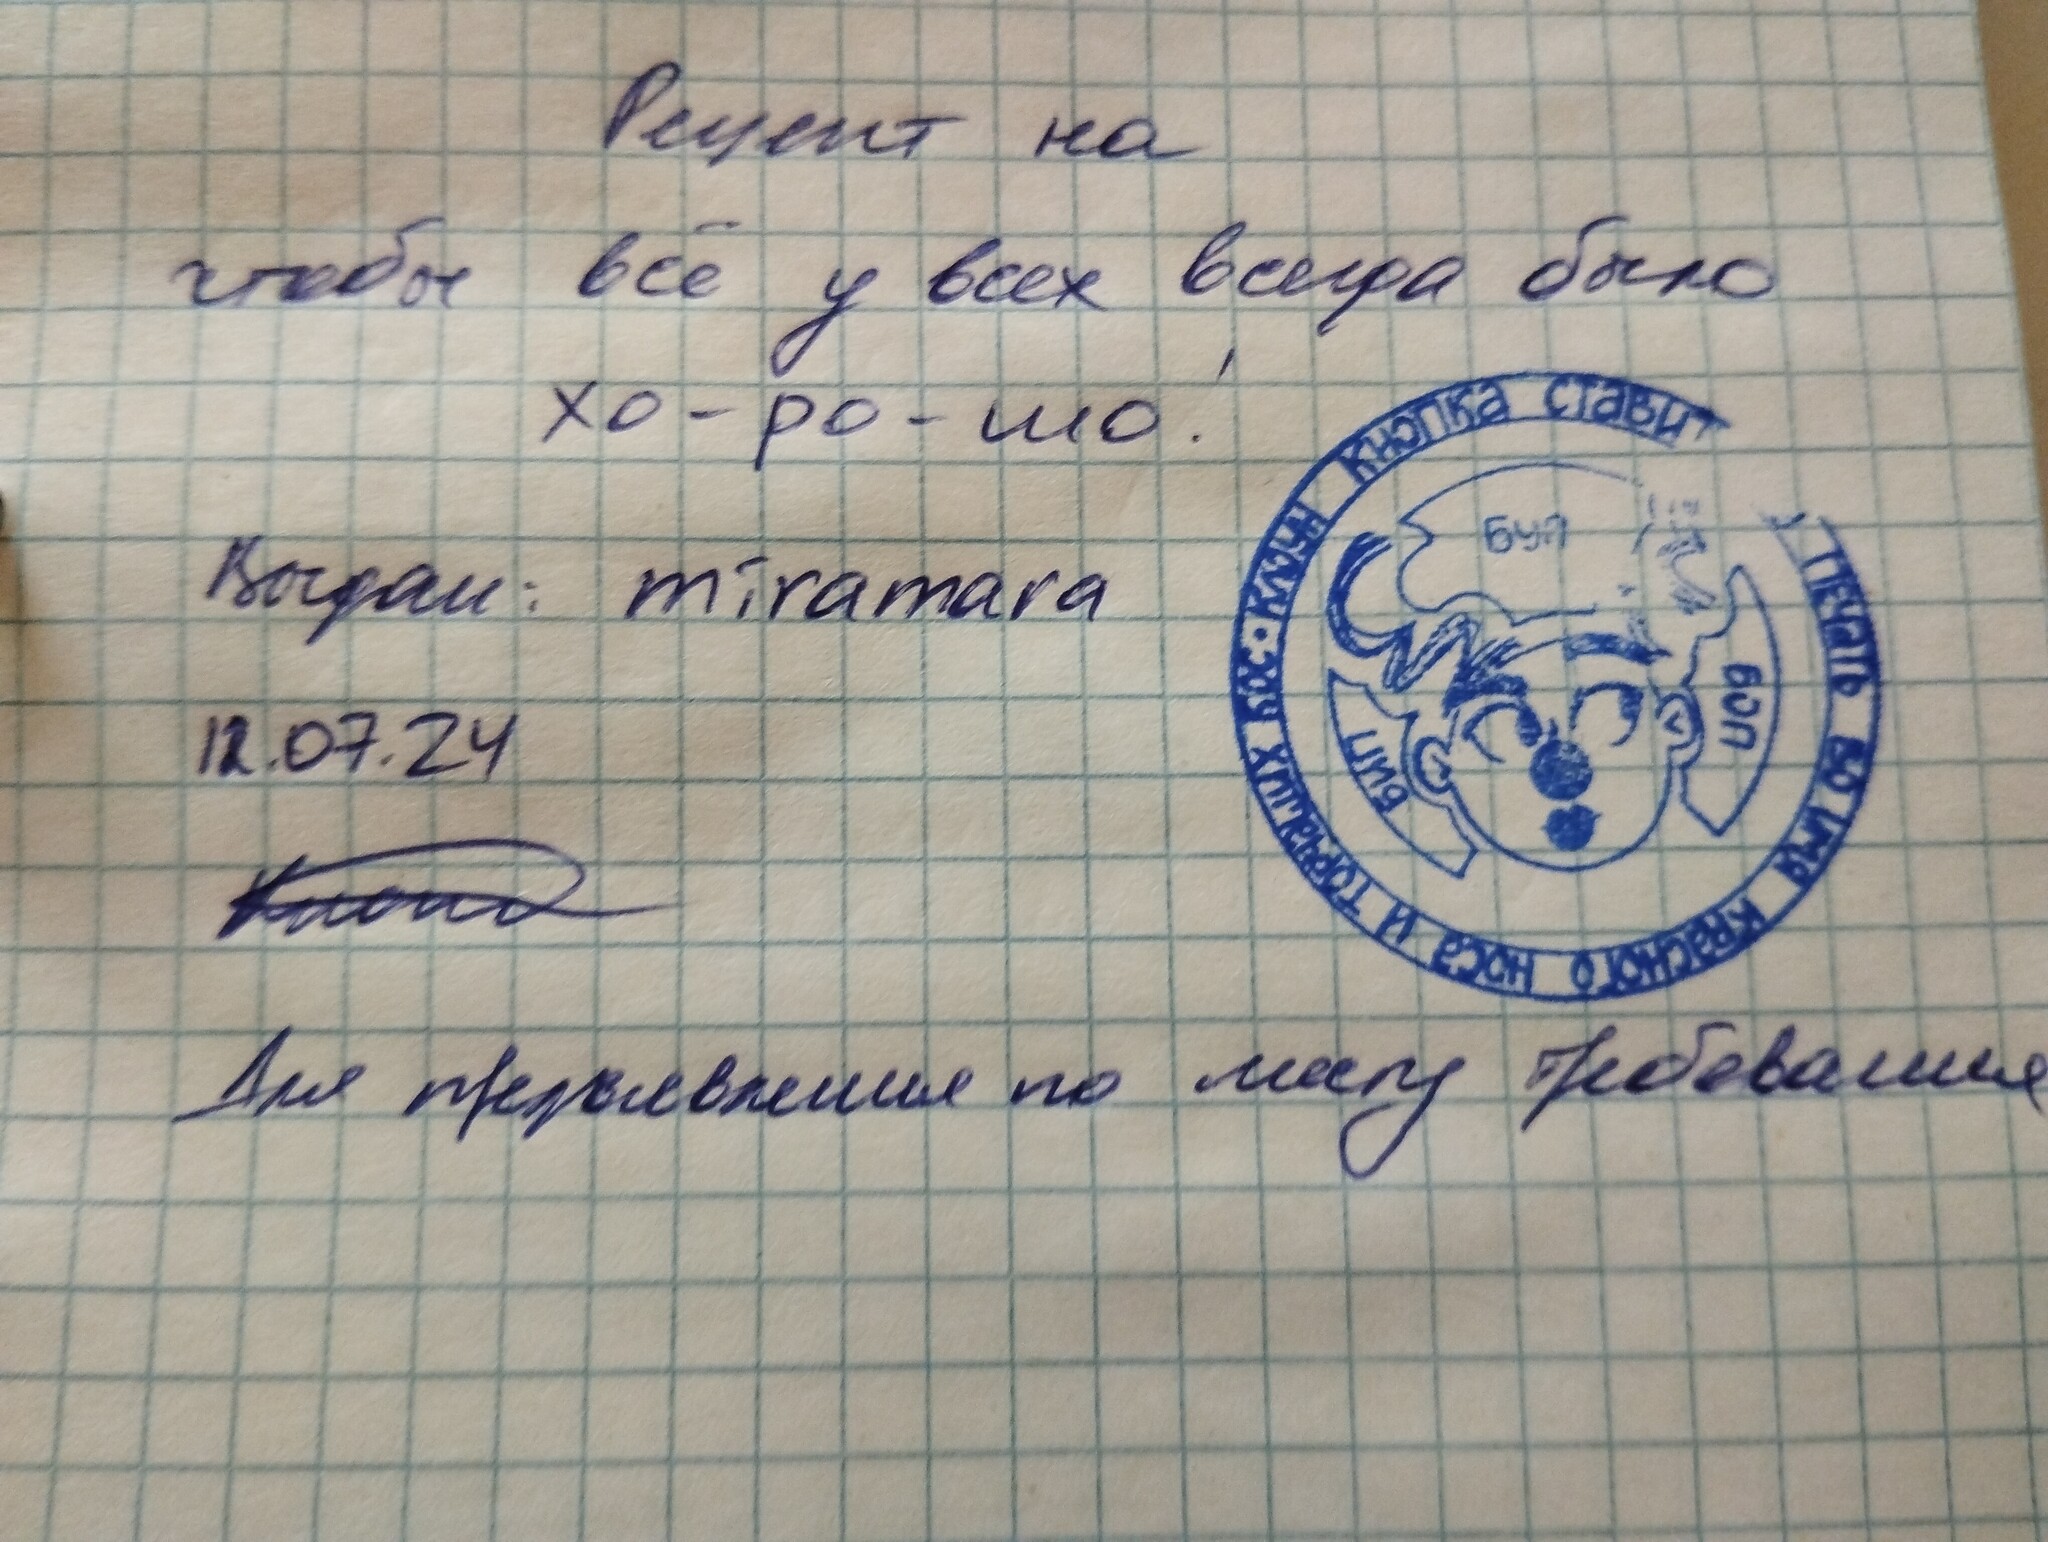 Рецепт на
чтобы всё у всех всегда было
хо-ро-шо!
Выдан: miramara
12.07.24
Кнопа
Для предъявления по месту требования
КЛОУН КНОПКА СТАВИТ ПЕЧАТЬ ВО ИМЯ КРАСНОГО НОСА И ТОРЧАЩИХ КОС •
БУП
БОП
БИП